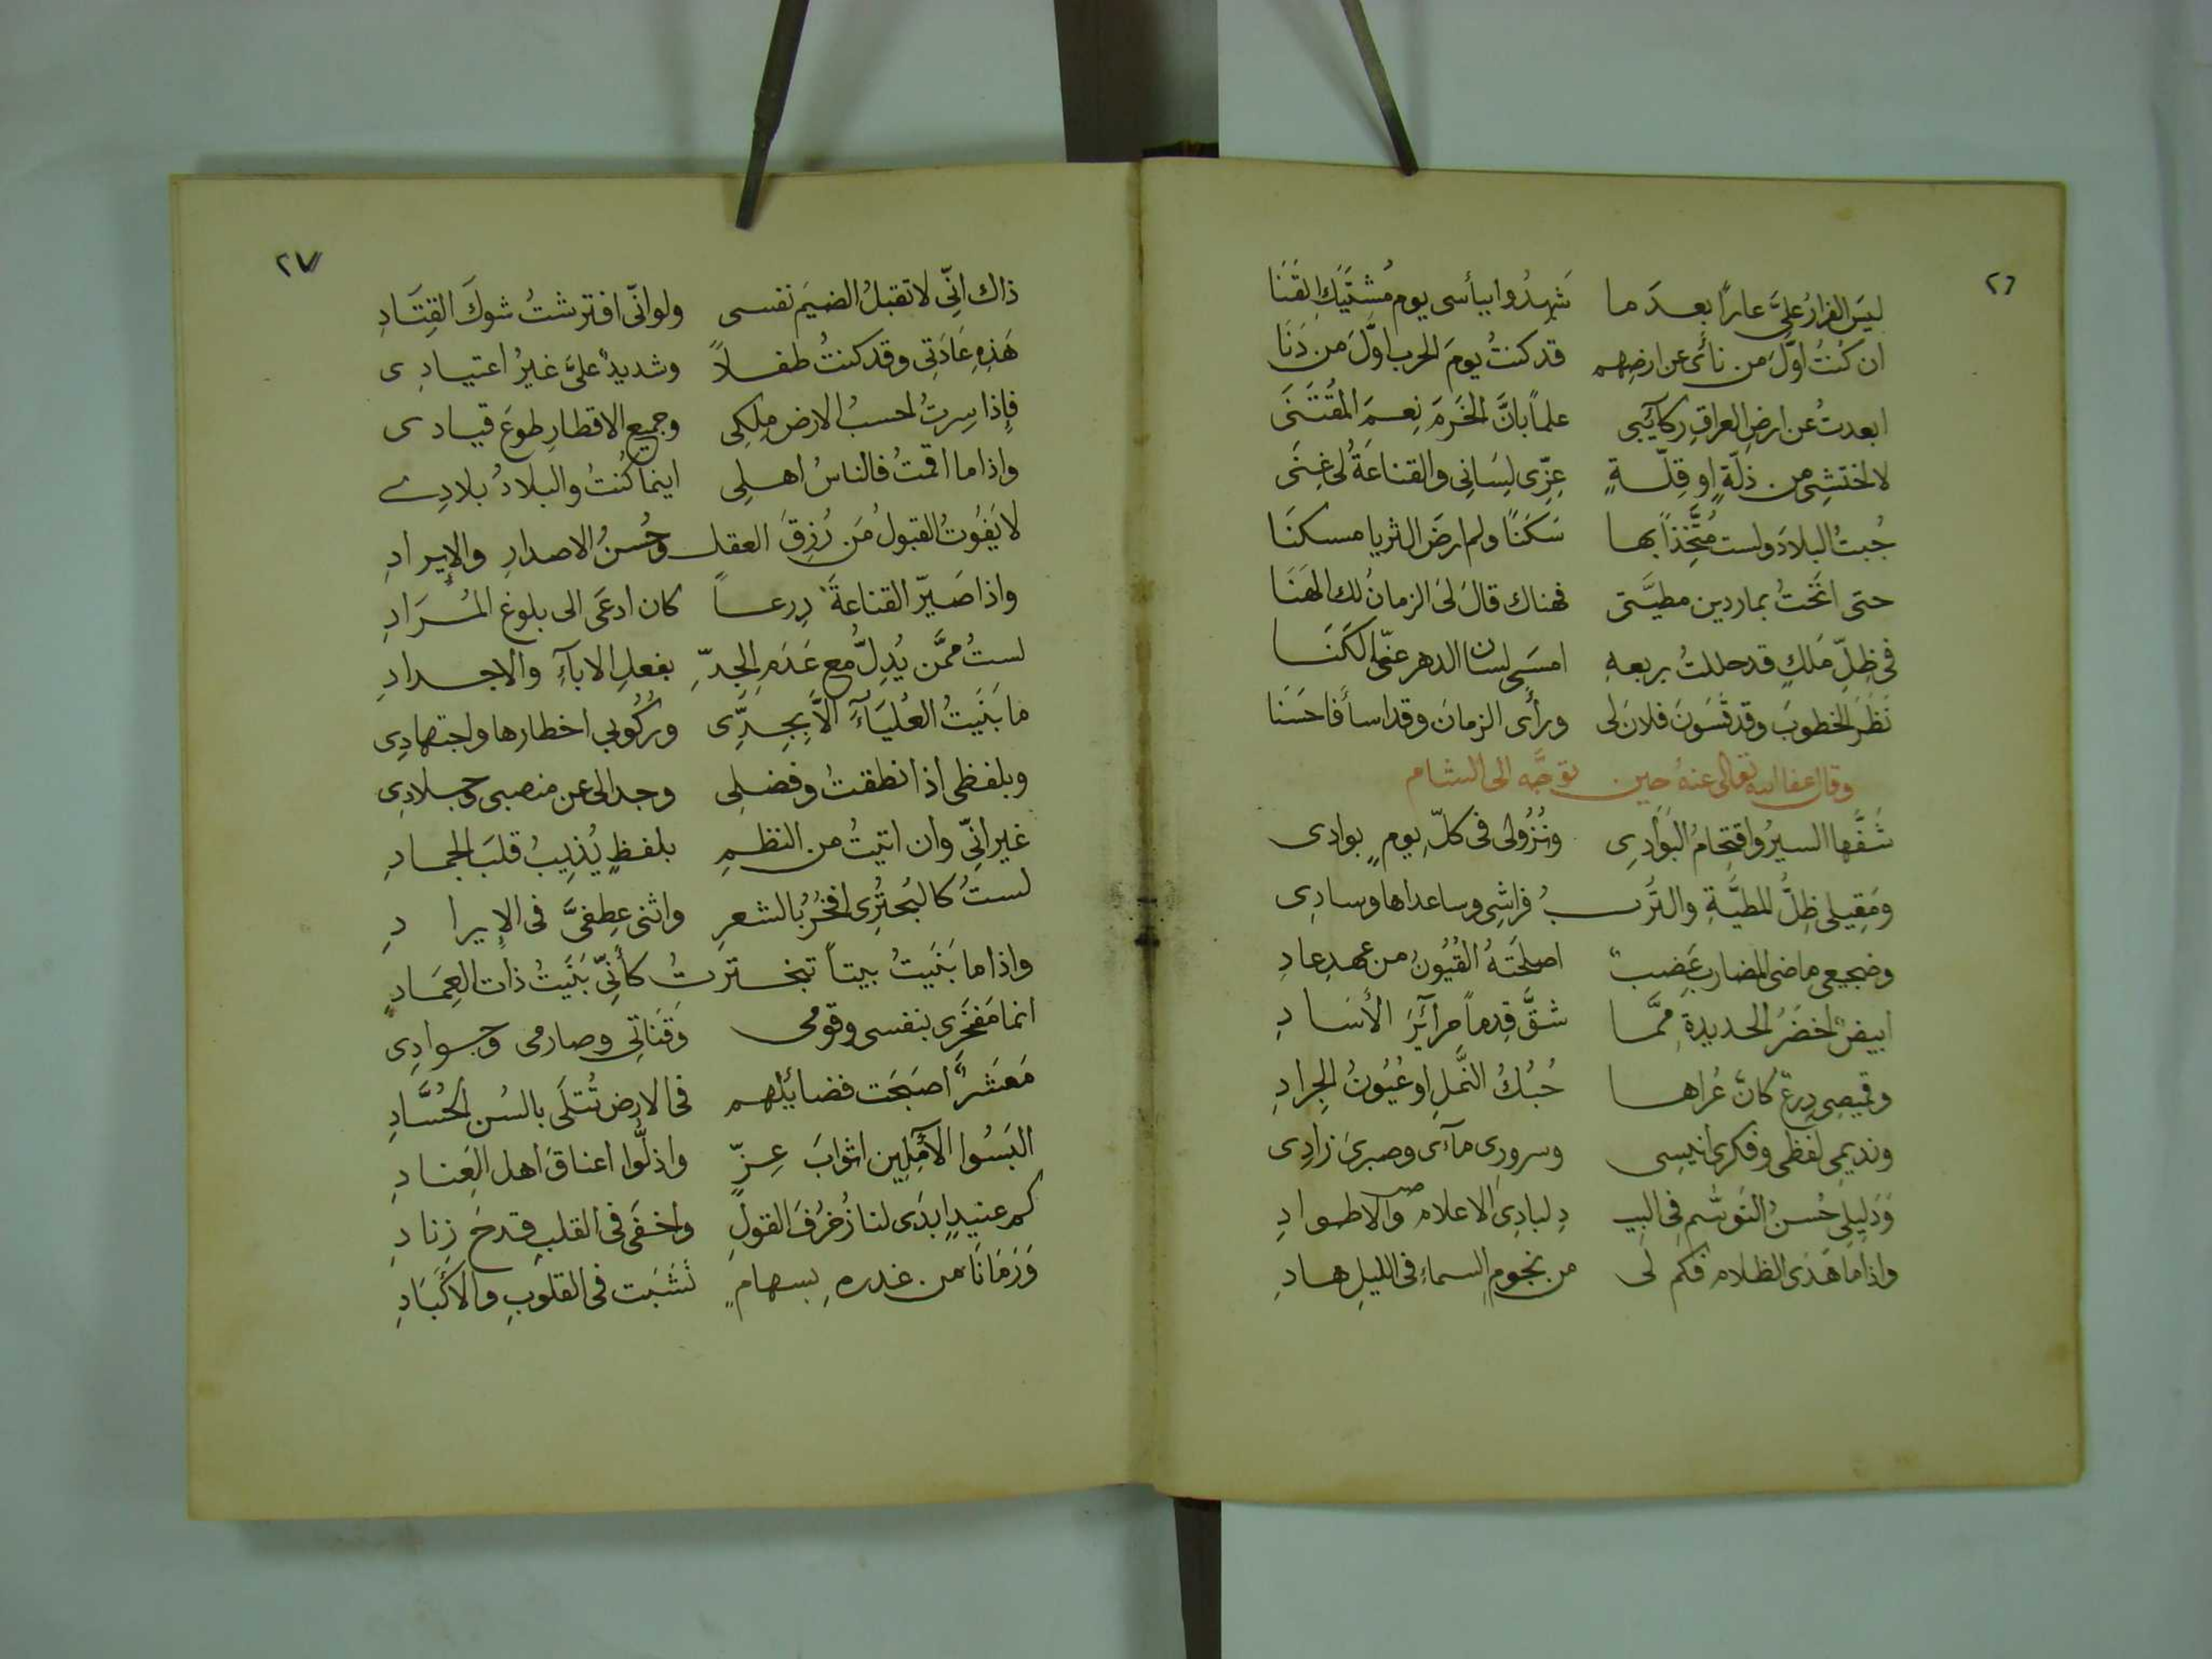 ٢٦
ليسَ الفرارُ علىَّ عاراً بعدَ ما شَهِدُوا ببأسى يوم مُشتَبَكِ القَنَا
ان كُنْتُ اوَّلَ من نائى عن ارضِهم قد كنتُ يومَ الحرب اوَّلَ من دَنَا
ابعدتُ عن ارضِ العراقِ ركآيبى علماً بانَّ الحَزمَ نِعمَ المُقتَنَى
لا اختشِى من ذلّةٍ او قِلّةٍ عِزّى لِسَانِى والقناعةُ لى غِنَى
جُبتُ البلادَ ولست مُتَّخِذاً بها سَكَنًا ولم ارضَ الثريا مسكنَا
حتى انَختُ بماردين مطيَّتى فهناك قالَ لىَ الزمانُ لك الهَنَا
فى ظِلِّ مَلكٍ قد حللتُ بربعهِ امسَى لسان الدهر عنّى الكَنَا
نَظَرَ الخطوبَ وقد قَسَونَ فلانَ لى ورأى الزمانَ وقد اسأ فاحسَنَا
وقال عفا الله تعالى عنهُ حين توجَّه الى الشام
شَفَّها السيرُ واقتِحامُ البَوَادِى ونُزُولى فى كلِّ يومٍ بوادى
ومَقِيلى ظِلُّ المطيَّةِ والتُربُ فراشِى وساعداها وسادِى
وضجيعى ماضى المضارب عَضبٌ اصلحَتهُ القُيُونُ من عهدِ عادِ
ابيضٌ اخضَرُ الحديدةِ مِمَّا شقَّ قِدماً مرآئِرَ الأسَادِ
وقميصِى دِرعٌ كانَّ عُراها حُبُكُ النَّملِ او عُيُونُ الجِرادِ
ونديمِى لفظى وفكرى انيسِى وسرورِى مآءى وصبرىَ زادِى
وَدَلِيلِى حُسنُ التَوسُّمِ فِى البيدِ لبادِى الاعلامِ والاطوادِ
واذا ما هَدَى الظلامُ فكم لى من نجومِ السماءِ فى الليلِ هادِ
٢٧
ذاك انِّى لا تقبلُ الضيمَ نفسى ولو انّى افترشتُ شوكَ القِتَادِ
هَذِهِ عَادَتِى وقد كنتُ طفلاً وشديدٌ علىَّ غيرُ اعتيادِى
فإذا سِرتُ احسبُ الارض مِلكِى وجميع الاقطارِ طوعَ قيادى
واذا ما اقمتُ فالناسُ اهلِى اينما كُنتُ والبلادُ بلادِى
لا يَفُوتُ القبولُ مَن رُزِقَ العقل وحُسنُ الاصدارِ والإيرادِ
واذا صَيّر القناعةَ دِرعاً كان ادعَى الى بلوغ المُرَادِ
لستُ ممَّن يُدِلُّ مع عَدَمِ الجِدِّ بفعلِ الابآءِ والاجدادِ
ما بَنَيتُ العُليَآءَ الاَّ بِجِدِّى ورُكُوبى اخطارها واجتهادِى
وبلفظى اذا نطقتُ وفضلِى وجدالى عن منصبى وجلادِى
غير انِّى وان اتيتُ من النظمِ بلفظٍ يُذِيبُ قلبَ الجمادِ
لستُ كالبُحتُرِى افخَرُ بالشعرِ واثنى عِطفىَّ فى الإيرادِ
واذا ما بَنَيتُ بيتاً تبخترتُ كأنِّى بَنَيتُ ذات العِمَادِ
انما مَفخَرِى بنفسى وقومى وَقَنَاتِى وصارمى وجوادِى
مَعشَرٌ اصبَحَت فضائلهم فى الارض تُتلَى بالسُن الحُسَّادِ
البَسُوا الآمِلِين اثوابَ عِزٍّ واذلُّوا اعناقَ اهل العِنادِ
كم عنيدٍ ابدَى لنا زُخرُفَ القولِ واخفَى فى القلبِ قدحَ زِنادِ
وَزَمَانًا من غدرهِ بسهامٍ نَشَبَت فى القلوبِ والاكبَادِ